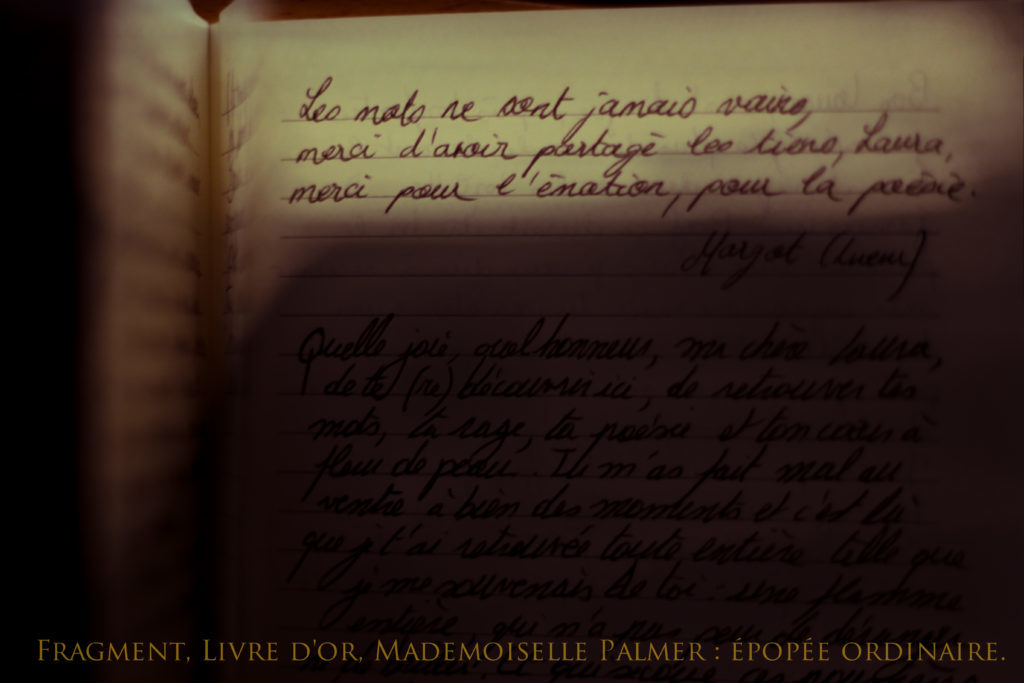 Les mots ne sont jamais vains,
merci d'avoir partagé les tiens, Laura,
merci pour l'émotion, pour la poésie.
Margot (Lueur)
Quelle joie, quel honneur, ma chère Laura,
de te (re)découvrir ici, de retrouver tes
mots, ta rage, ta poésie et ton cœur à
fleur de peau. Tu m'as fait mal au
ventre à bien des moments et c'est là
que je t'ai retrouvée toute entière telle que
je me souvenais de toi : une flamme
entière, qui n'a pas peur de
FRAGMENT, LIVRE D'OR, MADEMOISELLE PALMER : ÉPOPÉE ORDINAIRE.